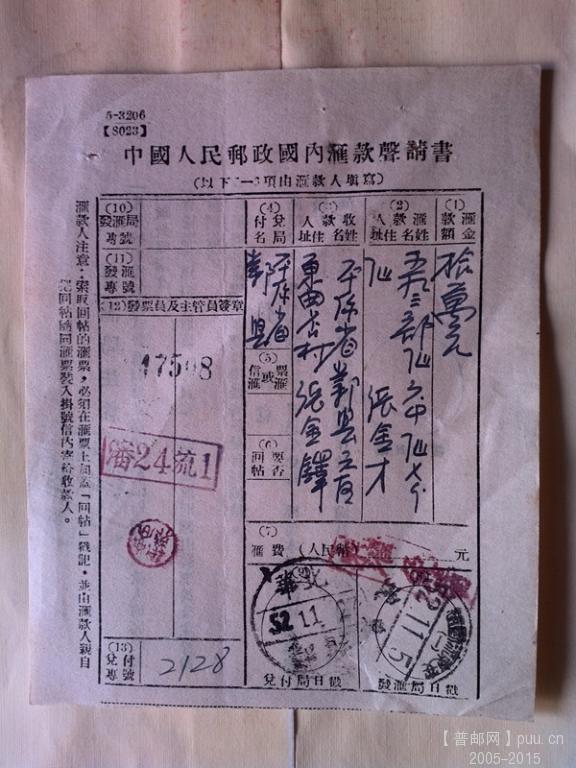 5-3206
【S023】
中國人民郵政國內滙款聲請書
(以下1—7項由滙款人填寫)
(1)
滙款金額
拾萬元
(2)
滙款人姓名住址
張金才
(3)
收款人姓名住址
平原省鄴縣
東田村 張金鐸
(4)
兌付局名
平原省
鄴县
(5)
信滙或票滙
(6)
要否回帖
(7)
滙費(人民幣) 元
(10)
發滙局專號
(11)
發滙專號
(12)發票員及主管員簽章
17598
瀋24流1
(13)
兌付專號
2128
52.11
兌付局日戳
52.11.5
發滙局日戳
滙款人注意:索取回帖的滙票,必須在滙票上加蓋「回帖」戳記,並由滙款人親自
把回帖隨同滙票裝入掛號信內寄給收款人。
【普邮网】puu.cn
2005-2015